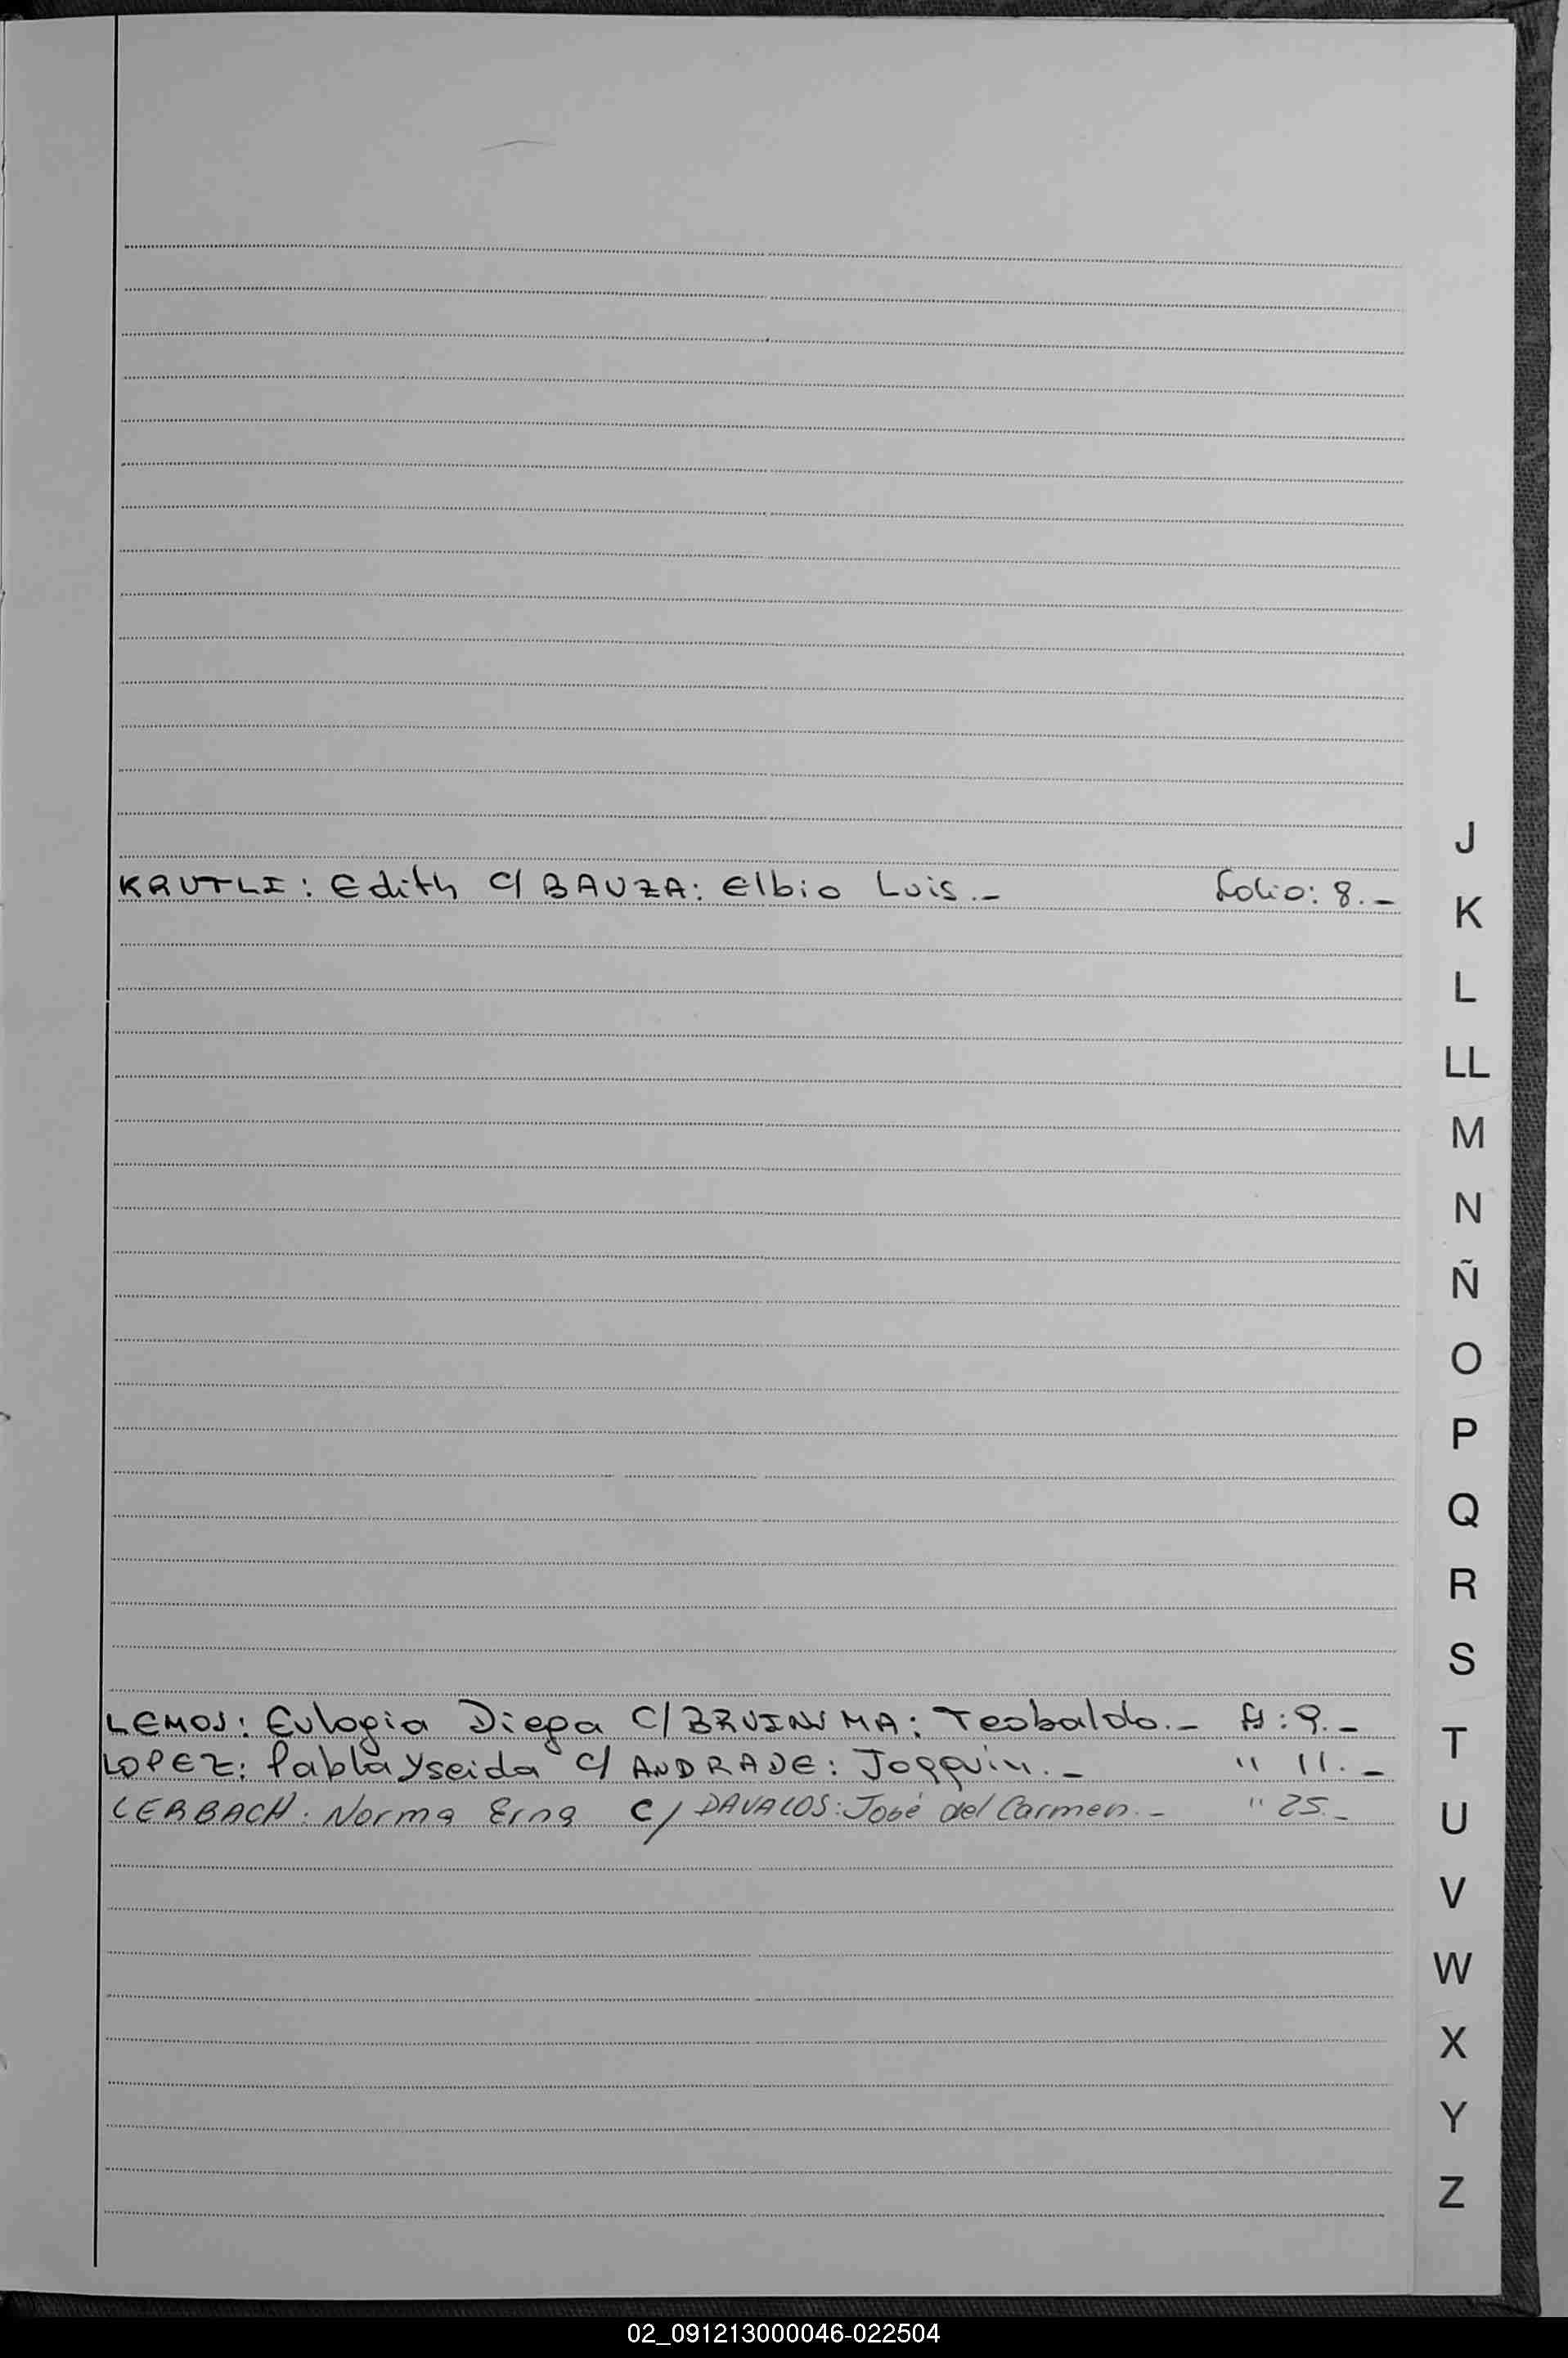 KRUTLI: Edith C/ BAUZA: Elbio Luis.- folio: 8.-
LEMOS: Eulogia Diega C/ BRUINSMA: Teobaldo.- fº: 9.-
LOPEZ: Pabla Yseida C/ ANDRADE: Joaquín.- " 11.-
LERBACH: Norma Erna C/ DAVALOS: José del Carmen.- " 25.-
J
K
L
LL
M
N
Ñ
O
P
Q
R
S
T
U
V
W
X
Y
Z
02_091213000046-022504